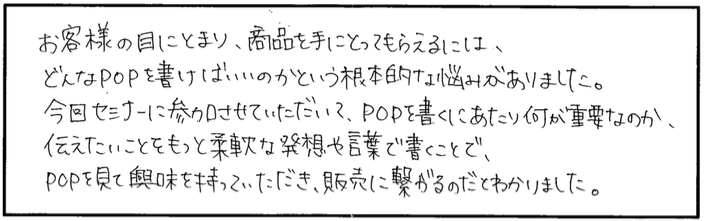 お客様の目にとまり、商品を手にとってもらえるには、
どんなPOPを書けばいいのかという根本的な悩みがありました。
今回セミナーに参加させていただいて、POPを書くにあたり何が重要なのか、
伝えたいことをもっと柔軟な発想や言葉で書くことで、
POPを見て興味を持っていただき、販売に繋がるのだとわかりました。